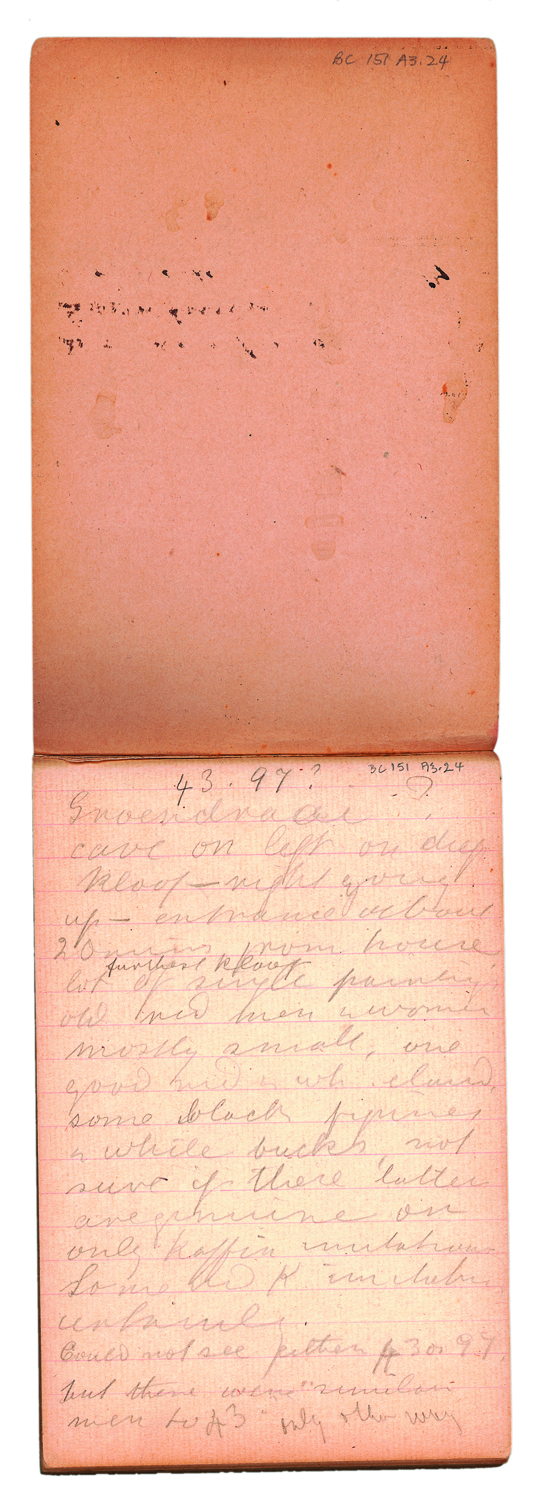 BC 151 A3.24
43. 97?
BC 151 A3.24
?
Groendraai
cave on left on deep
kloof — right going
up — entrance about
20 mins from house
furthest kloof
lot of single paintings
old red men & women
mostly small, one
good red & wh. eland,
some black figures
& white bucks, not
sure if these latter
are genuine or
only Kaffir imitations
Some red K imitations
certainly.
Could not see either 43 or 97,
but there were "similar
men to 43" only other way